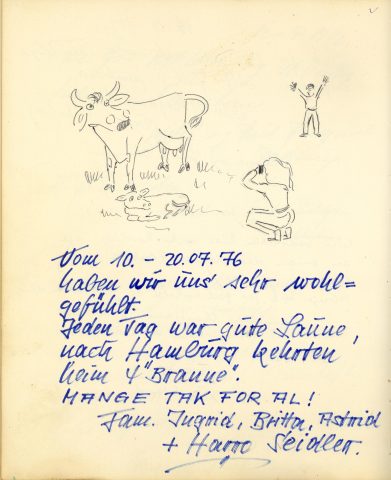 Vom 10. - 20.07. 76
haben wir uns sehr wohl=
gefühlt.
Jeden Tag war gute Laune,
nach Hamburg kehrten
heim 4 "Braune".
MANGE TAK FOR AL!
Fam. Ingrid, Britta, Astrid
+ Harro Seidler.